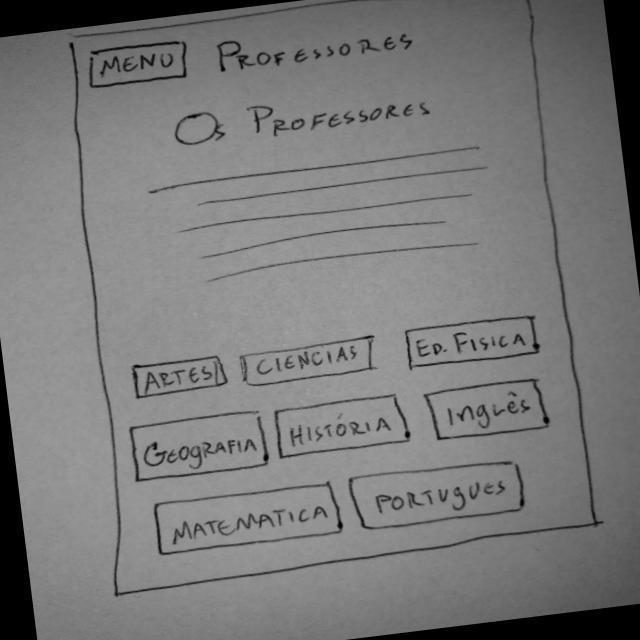 MENU PROFESSORES
Os PROFESSORES
ARTES CIENCIAS ED. FÍSICA
GEOGRAFIA HISTÓRIA INglês
MATEMATICA PORTUgUES